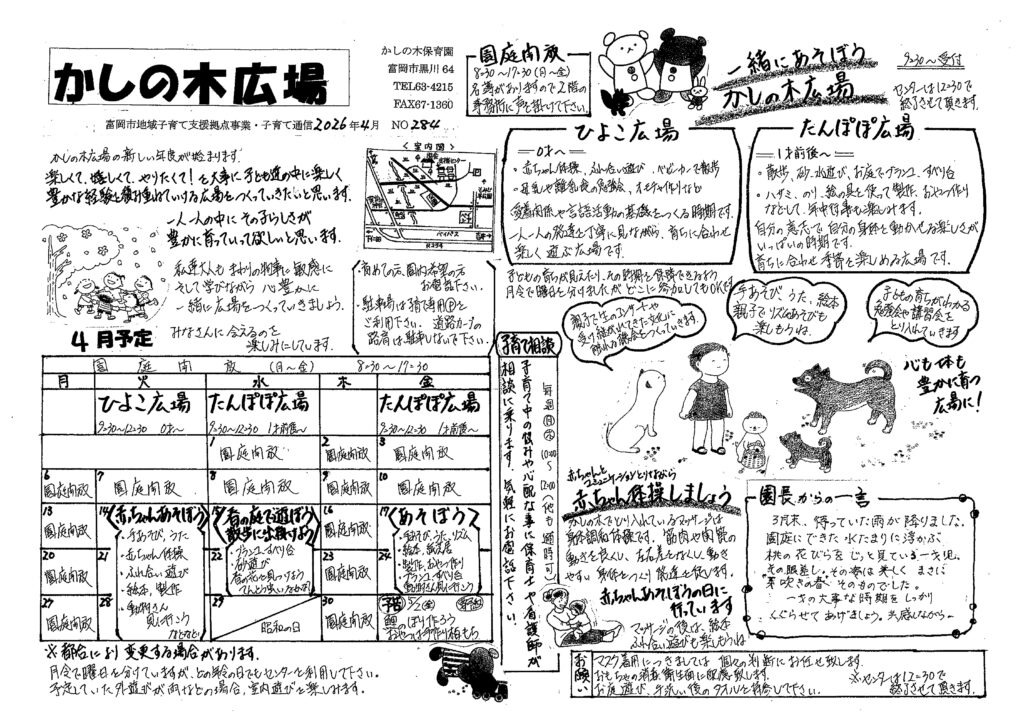 かしの木広場
かしの木保育園
富岡市黒川64
TEL63-4215
FAX67-1360
富岡市地域子育て支援拠点事業・子育て通信2026年4月 NO284
園庭開放
8:30～17:30(月～金)
名簿がありますので2階の
事務所に声を掛けて下さい。
一緒にあそぼう
かしの木広場
9:30～受付
センターは12:30で
終了させて頂きます。
かしの木広場の新しい年度が始まります。
楽しくて、嬉しくて、やりたくて!を大事に子ども達の中に楽しく
豊かな経験を積み重ねていける広場をつくっていきたいと思います。
一人一人の中にその子らしさが
豊かに育っていって欲しいと思います。
私達大人もまわりの物事に敏感に
そして学びながら心豊かに
一緒に広場をつくっていきましょう。
みなさんに会えるのを
楽しみにしています。
＜案内図＞
バイパス
R254
・初めての方、園内希望の方
お電話下さい。
・駐車場は子育て専用Ⓟを
ご利用下さい。道路カーブの
路肩は駐車しないで下さい。
ひよこ広場
0才～
・赤ちゃん体操、ふれあい遊び、ベビーカーで散歩
・母乳や離乳食の勉強会、オモチャ作りなど
愛着関係や言語活動の基礎をつくる時期です。
一人一人の発達を丁寧に見ながら、育ちに合わせ
楽しく遊ぶ広場です。
たんぽぽ広場
1才前後～
・散歩、砂・水遊び、お庭でブランコ、すべり台
・ハサミ、のり、絵の具を使って製作、おやつ作り
などして、年中行事も楽しみます。
自分の意志で自分の身体を動かせる楽しさが
いっぱいの時期です。
育ちに合わせ季節を楽しめる広場です。
子どもの育ちが見えたり、その時期を保障できるよう
月令で曜日を分けましたがどこに参加してもOKです
親子で生のコンサートや
受け継がれてきた文化に
触れる機会をつくっていきます。
手あそび、うた、絵本
親子でリズムあそびも
楽しもうね。
子どもの育ちがわかる
勉強会や講習会を
とり入れていきます
心も体も
豊かに育つ
広場に!
4月予定
園庭開放(月～金) 8:30～17:30
月 火 水 木 金
ひよこ広場 たんぽぽ広場 たんぽぽ広場
9:30～12:30 0才～ 9:30～12:30 1才前後～ 9:30～12:30 1才前後～
1 園庭開放 2 園庭開放 3 園庭開放
6 園庭開放 7 園庭開放 8 園庭開放 9 園庭開放 10 園庭開放
13 園庭開放 14 赤ちゃんあそぼう 15 春の庭で遊ぼう 散歩に出掛けよう 16 園庭開放 17 あそぼう
20 園庭開放 21 22 23 園庭開放 24
・手あそび、うた
・赤ちゃん体操
・ふれ合い遊び
・絵本、製作
・動物さん
見に行こう
などなど
・ブランコ、すべり台
・砂遊び
・春の花も見つけよう
てんとう虫いるかな
・手遊び、うた、リズム
・絵本、紙芝居
・製作、おやつ作り
・ブランコ、すべり台
・動物さん見に行こう
27 園庭開放 28 29 昭和の日 30 園庭開放
予告 5/2(金)
鯉のぼり作ろう
おやつは手作り柏もち
※都合により変更する場合があります。
月令で曜日を分けていますが、どの年令の日でもセンターを利用して下さい。
予定していた外遊びが雨などの場合、室内遊びを楽しみます。
子育て相談
毎週(月)(水)10:00～12:00(他も随時可)
子育て中の悩みや心配な事に保育士や看護師が
相談に乗ります。気軽にお電話下さい。
赤ちゃんと
コミュニケーションとりながら
赤ちゃん体操しましょう
かしの木でとり入れているマッサージは
身体調和体操です。筋肉や関節
の動きを良くし、左右差をなくし、動き
やすい身体をつくり発達を促します。
赤ちゃんあそぼうの日に
行っています
マッサージの後は、絵本
ふれ合い遊びも楽しもうね
園長からの一言
3月末、待っていた雨が降りました。
園庭にできた水たまりに浮かぶ
桃の花びらをじっと見ている一才児。
その眼差し、その春は美しく まさに
芽吹きの春 そのものでした。
一才の大事な時期をしっかり
くぐらせてあげましょう。共感しながら…
お願い
マスク着用につきましては個々の判断にお任せ致します。
おもちゃの消毒、衛生面に配慮致します。
お庭遊び、手洗い後のタオルを持参して下さい。
※センターは12:30で
終了させて頂きます。